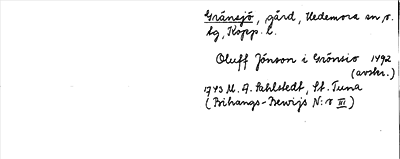 Gränsjö, gård, Hedemora sn o.
tg, Kopp. l.
Oluff Jönson i Grönsio 1492
(avskr.)
1743 M. A. Sahlstedt, St. Tuna
(Bihangs-Bewijs N:o III)